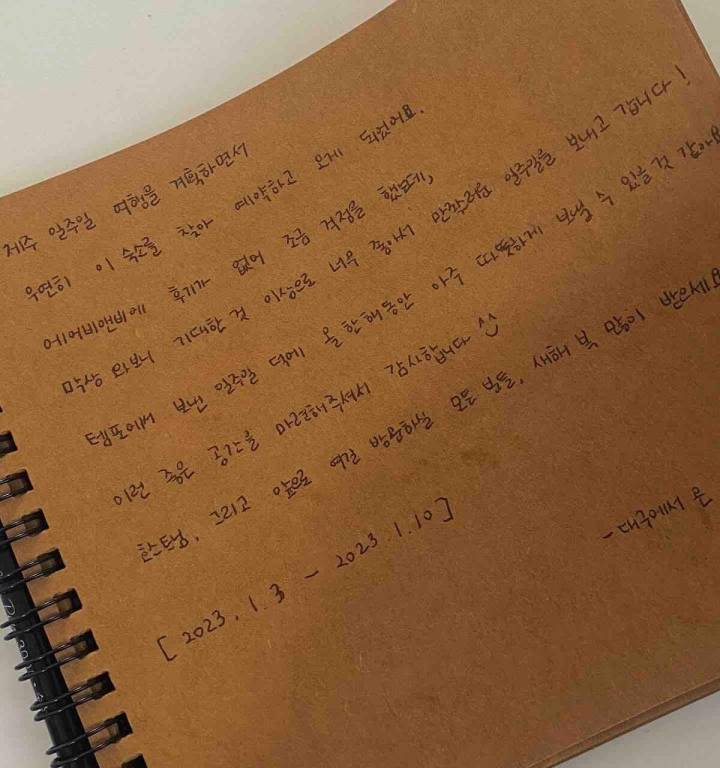 제주 일주일 여행을 계획하면서
우연히 이 숙소를 찾아 예약하고 오게 되었어요.
에어비앤비에 후기가 없어 조금 걱정을 했는데,
막상 와보니 기대한 것 이상으로 너무 좋아서 만족러운 일주일을 보내고 갑니다!
템포에서 보낸 일주일 덕에 올 한해동안 아주 따뜻하게 보낼 수 있을 것 같아요
이런 좋은 공간을 마련해주셔서 감사합니다 ^^
호스트님, 그리고 앞으로 여길 방문하실 모든 분들, 새해 복 많이 받으세요
[2023. 1. 3 - 2023. 1. 10]
- 대구에서 온